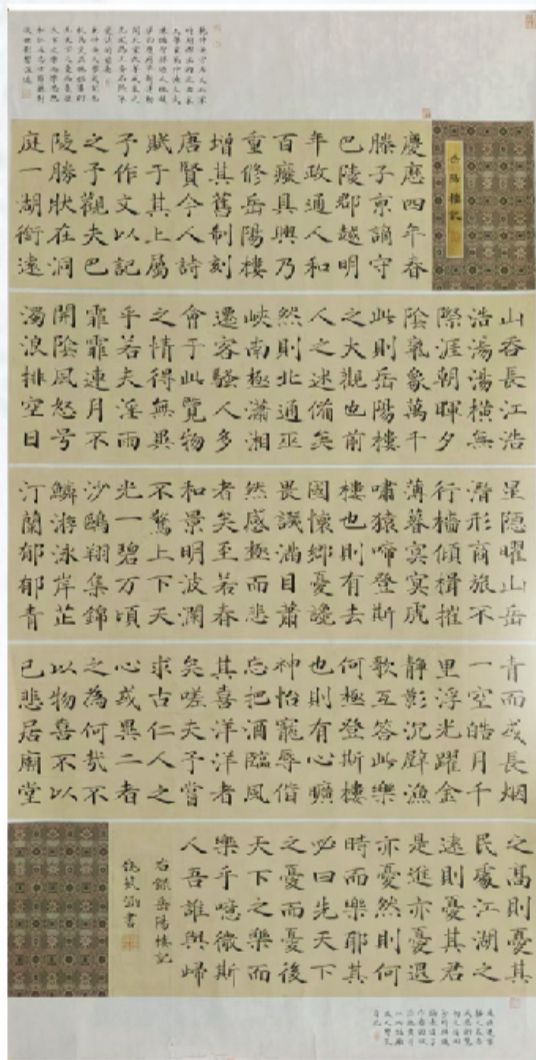 岳陽樓記
慶曆四年春
滕子京謫守
巴陵郡越明
年政通人和
百廢具興乃
重修岳陽樓
增其舊制刻
唐賢今人詩
賦于其上屬
予作文以記
之予觀夫巴
陵勝狀在洞
庭一湖銜遠
山吞長江浩
浩湯湯橫無
際涯朝暉夕
陰氣象萬千
此則岳陽樓
之大觀也前
人之述備矣
然則北通巫
峽南極瀟湘
遷客騷人多
會于此覽物
之情得無異
乎若夫淫雨
霏霏連月不
開陰風怒号
濁浪排空日
星隱曜山岳
潛形商旅不
行檣傾楫摧
薄暮冥冥虎
嘯猿啼登斯
樓也則有去
國懷鄉憂讒
畏譏滿目蕭
然感極而悲
者矣至若春
和景明波瀾
不驚上下天
光一碧万頃
沙鷗翔集錦
鱗游泳岸芷
汀蘭郁郁青
青而或長烟
一空皓月千
里浮光躍金
靜影沉璧漁
歌互答此樂
何極登斯樓
也則有心曠
神怡寵辱偕
忘把酒臨風
其喜洋洋者
矣嗟夫予嘗
求古仁人之
心或異二者
之為何哉不
以物喜不以
己悲居廟堂
之高則憂其
民處江湖之
遠則憂其君
是進亦憂退
亦憂然則何
時而樂耶其
必曰先天下
之憂而憂後
天下之樂而
樂乎噫微斯
人吾誰與歸
右錄岳陽樓記
書